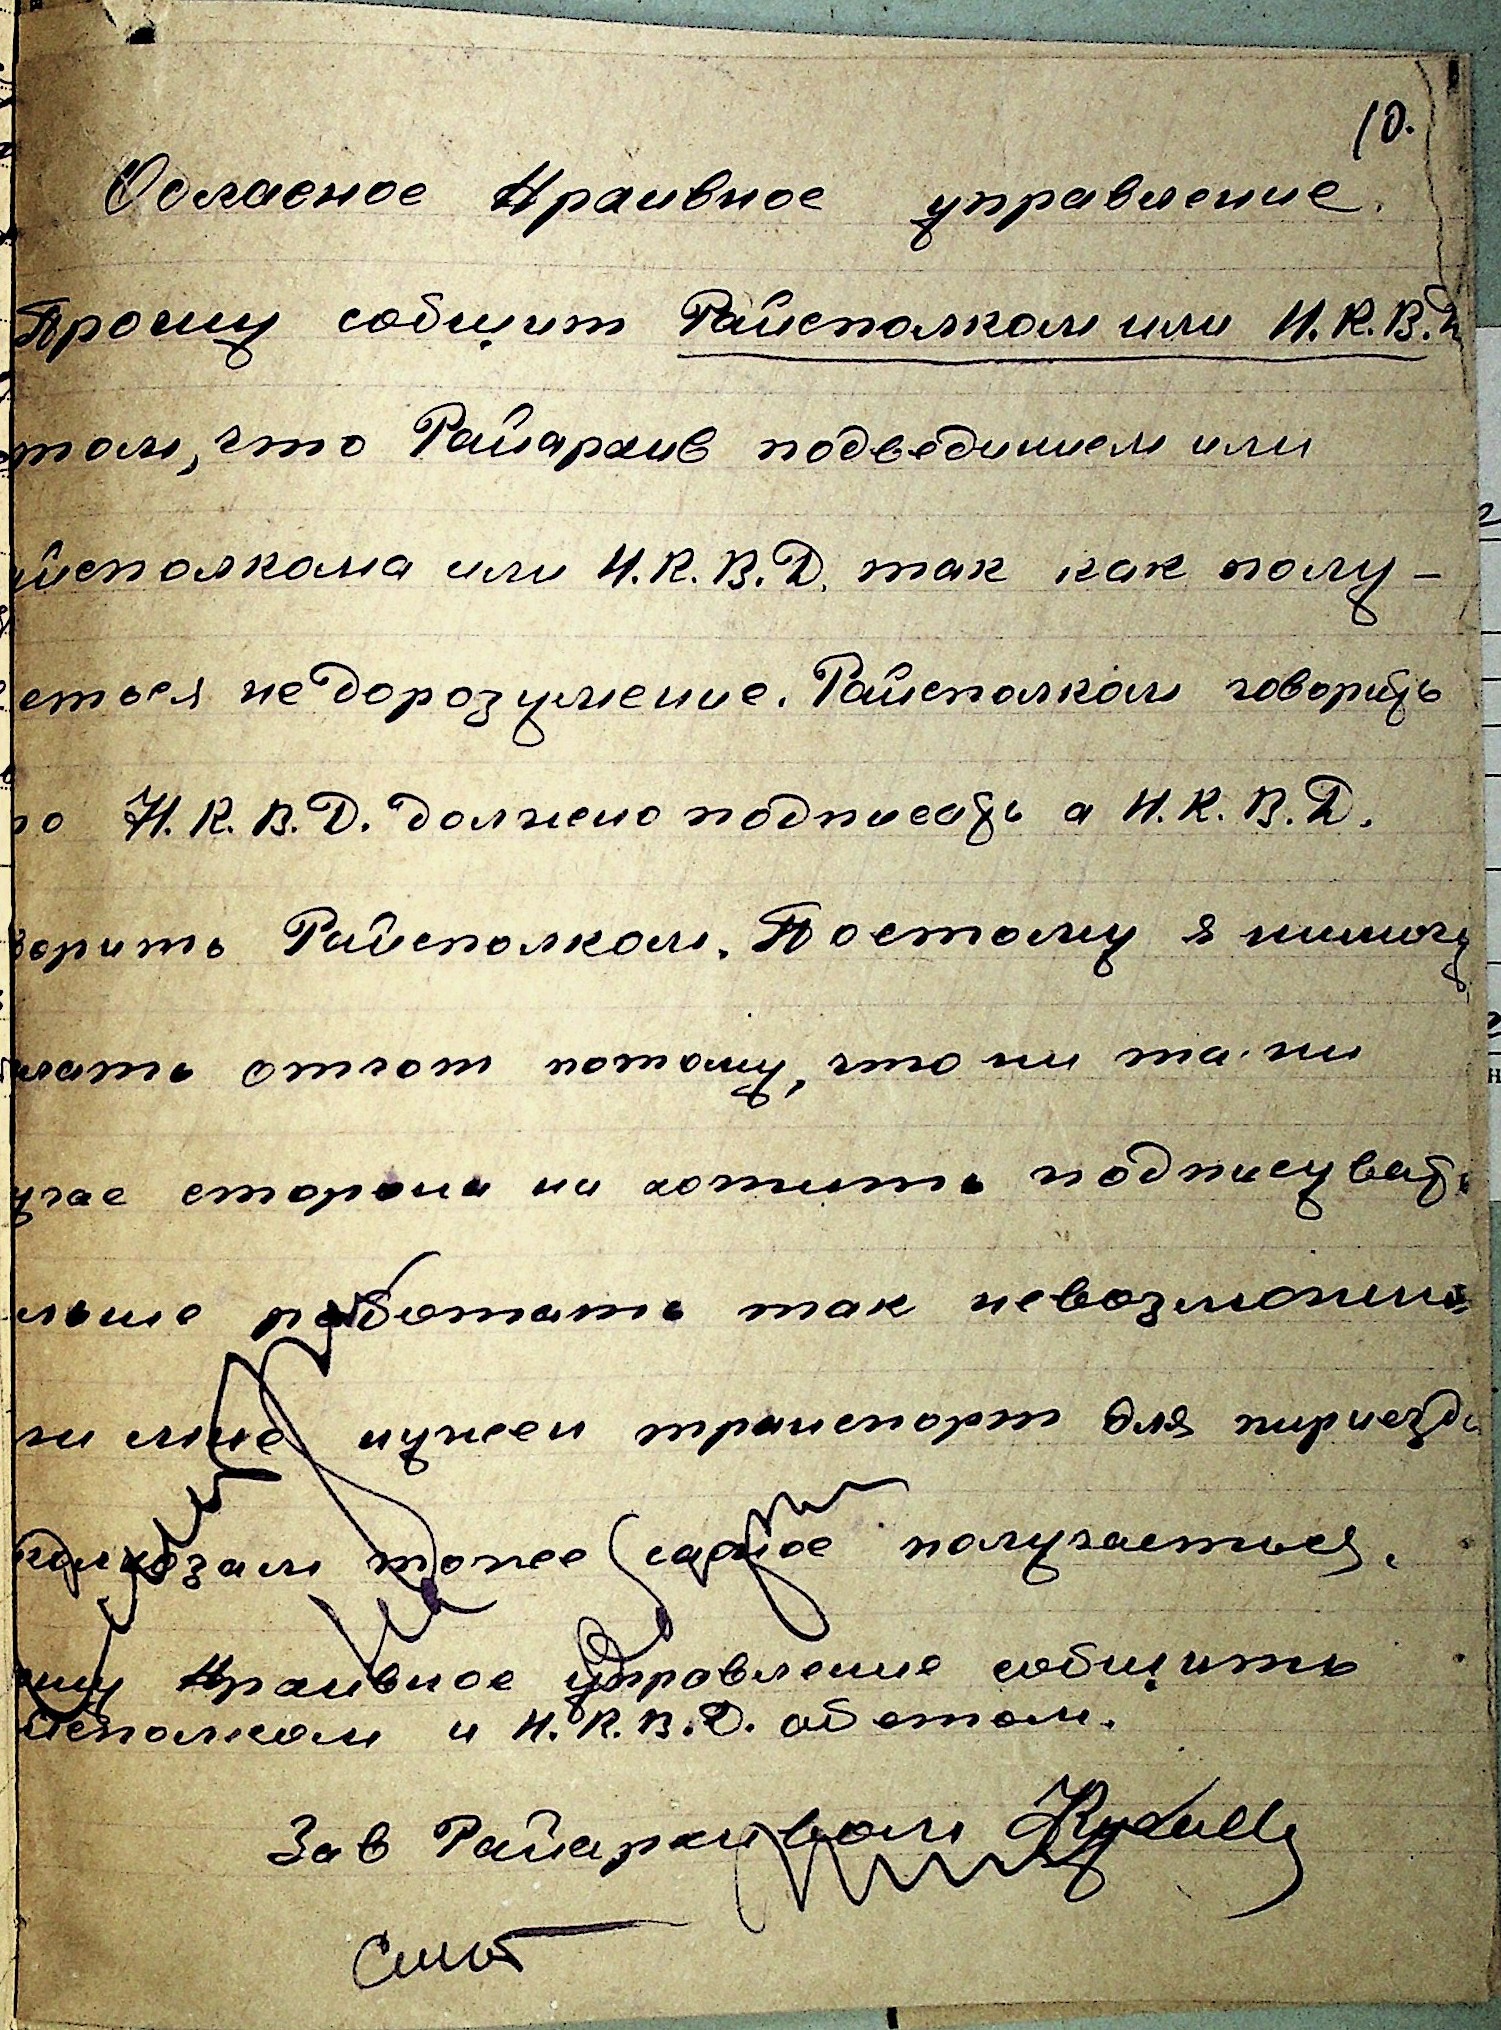 10.
Обласное Краивное управление.
Прошу собщит Райсполком или Н.К.В.Д
том, что Райархив подвединием или
йисполкома или Н.К.В.Д. так как полу-
еться недорозумение. Райсполком говорить
то Н.К.В.Д. должено подписать а Н.К.В.Д.
ворить Райсполком. Поетому я нимогу
лать отчот потому, что ни та ни
угае сторона ни хотить подписувать
льше работать так невозможно
ли мне нужен транспорт для пириезда
колхозам тоже самое получаеться.
ошу Краивное управление собщить
йсполком и Н.К.В.Д. об етом.
Зав Райархивом